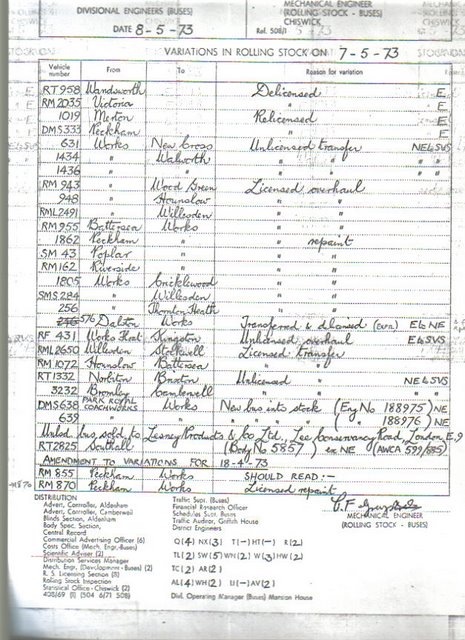 DIVISIONAL ENGINEERS (BUSES)
MECHANICAL ENGINEER
(ROLLING STOCK - BUSES)
CHISWICK
DATE 8-5-73
Ref. 508/1
VARIATIONS IN ROLLING STOCK ON 7-5-73
Vehicle number From To Reason for variation
RT 958 Wandsworth Delicensed E
RM 2035 Victoria " E
1019 Merton Relicensed E
DMS 333 Peckham " E
631 Works New Cross Unlicensed transfer NE & SVS
1434 " Walworth " " "
1436 " " " " "
RM 943 " Wood Green Licensed overhaul
948 " Hounslow " "
RML 2491 " Willesden " "
RM 955 Battersea Works " "
1862 Peckham " " repaint
SM 43 Poplar " " "
RM 162 Riverside " " "
1805 Works Cricklewood " "
SMS 284 " Willesden " "
256 " Thornton Heath " "
576 Dalston Works Transferred & dlicensed E to NE
RF 431 Works Float Kingston Unlicensed overhaul E & SVS
RML 2650 Willesden Stockwell Licensed transfer
RM 1072 Hounslow Battersea " "
RT 1332 Norbiton Brixton Unlicensed " NE & SVS
3232 Bromley Camberwell " "
DMS 638 PARK ROYAL COACHWORKS Works New bus into stock (Eng No 188975) NE
639 " " " " " " ( " " 188976) NE
Unlsd bus sold to Lesney Products & Co Ltd., Lee Conservancy Road, London E.9
RT 2825 Southall (Body No 5857) ex NE (AWCA 599/585)
AMENDMENT TO VARIATIONS FOR 18-4-73
RM 855 Peckham Works SHOULD READ:-
RM 870 Peckham Works Licensed repaint
DISTRIBUTION
Advert. Controller, Aldenham
Advert. Controller, Camberwell
Blinds Section, Aldenham
Body Spec. Section,
Central Record
Commercial Advertising Officer (6)
Costs Office (Mech. Engr.-Buses)
Scientific Adviser (2)
Distribution Services Manager
Mech. Engr. (Development - Buses) (2)
R. S. Licensing Section (3)
Rolling Stock Inspection
Statistical Office - Chiswick (2)
408/69 (1) (504 6/71 508)
Traffic Supt. (Buses)
Financial Research Officer
Schedules Supt. Buses
Traffic Auditor, Griffith House
District Engineers
Q (4) NX (3) T (-) HT (-) R (2)
TL (2) SW (5) WN (2) W (3) HW (2)
TC (2) AR (2)
AL (4) WH (2) U (-) AV (2)
Divl. Operating Manager (Buses) Mansion House
MECHANICAL ENGINEER
(ROLLING STOCK - BUSES)